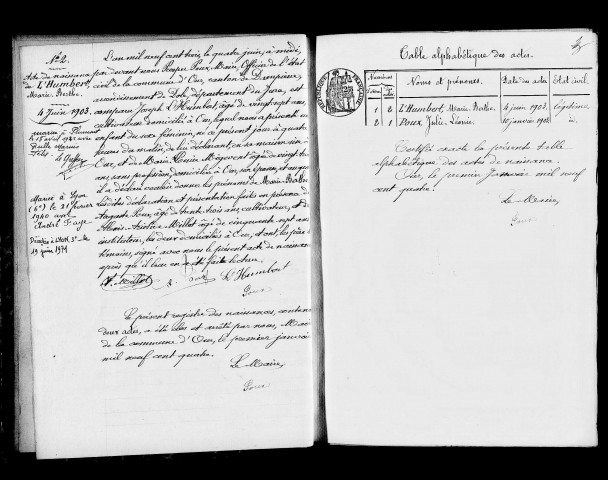 N° 2.
Acte de naissance
de L'Humbert,
Marie Berthe.
4 Juin 1903.
Marié à Lyon
(6e) le 21 février
1940 avec
André Faye
Décédée à
19 juin 1971
L'an mil neuf cent trois, le quatre juin, à midi,
par devant nous Poux, Maire, Officier de l'état
civil de la commune d'Our, canton de Dampierre,
arrondissement de Dole, département du Jura, est
comparu Joseph L'Humbert, âgé de vingt sept ans,
cultivateur domicilié à Our, lequel nous a présenté un
enfant du sexe féminin, né ce présent jour à quatre
heures du matin, de lui déclarant en sa maison sise à
Our, et de Marie âgée de vingt
ans, sans profession, domiciliée à Our, son épouse, et auquel
il a déclaré vouloir donner les prénoms de Marie Berthe.
Lesdites déclaration et présentation faites en présence de
Poux, âgé de trente trois ans, cultivateur, et de
Millot, âgé de cinquante sept ans,
instituteur, les deux domiciliés à Our, et ont, les père et
témoins, signé avec nous le présent acte de naissance
après qu'il leur en a été fait lecture.
Millot L'Humbert
Poux
Le présent registre des naissances, contenant
deux actes, a été clos et arrêté par nous, Maire
de la commune d'Our, le premier janvier
mil neuf cent quatre.
Le Maire,
Poux
Table alphabétique des actes.
Numéros
Noms et prénoms.
Date des actes
Etat civil.
1 2 L'Humbert, Marie Berthe. 4 juin 1903. Légitime
2 1 Poux Julie 10 janvier 1903 id.
Certifié exacte la présente table
alphabétique des actes de naissance.
Our, le premier Janvier mil neuf
cent quatre.
Le Maire,
Poux